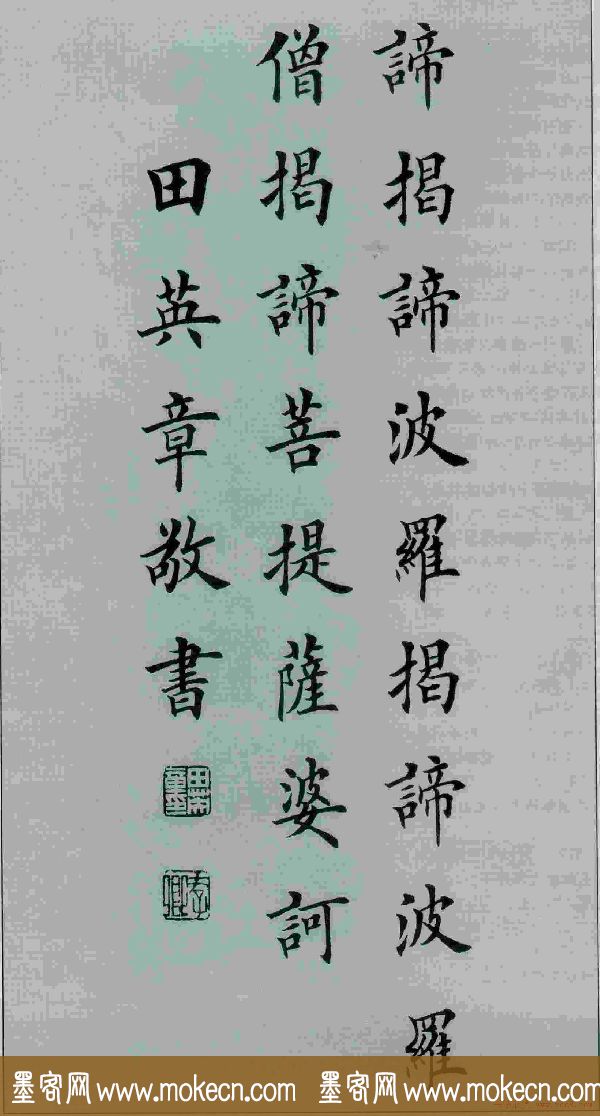 諦揭諦波羅揭諦波羅
僧揭諦菩提薩婆訶
田英章敬書
田英章印
墨客网 www.mokecn.com 墨客网 www.mokecn.com